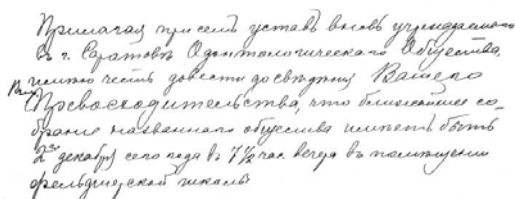 Прилагая при семъ уставъ вновь учреждаемого
въ г. Саратовѣ Одонтологическаго Общества,
имѣю честь довести до свѣдѣнія Вашего
Превосходительства, что ближайшее со-
браніе названнаго общества имѣетъ быть
2го декабря сего года въ 7 1/2 час. вечера въ помѣщеніи
фельдшерской школы